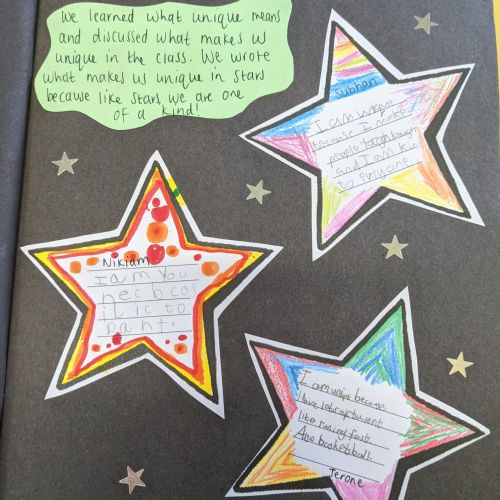 We learned what unique means
and discussed what makes us
unique in the class. We wrote
what makes us unique in stars
because like stars we are one
of a kind!
Subhan
I am uniqe
because I make
people laugh
and I am kid
to everyone.
Nikiam
I am you
nec bcos
it ic to
panti
I am uniqe because
I love
like runing fast
And basketball.
Jerone